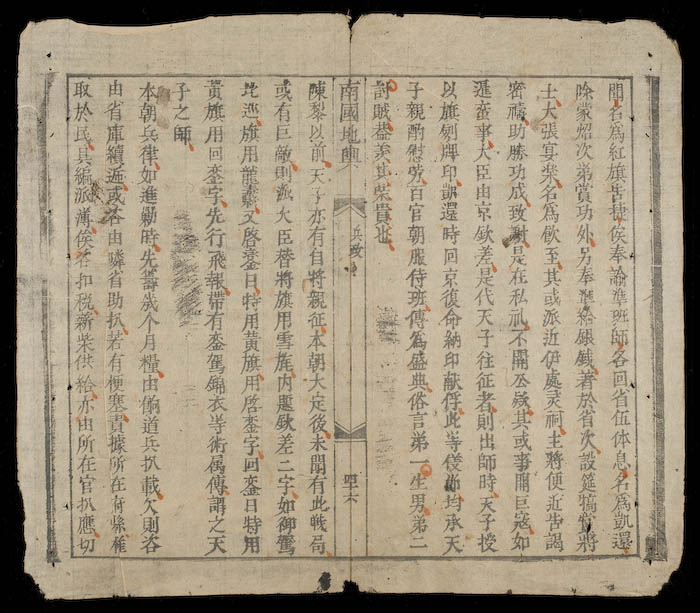 聞名爲紅旗告捷俟奉諭準班師各回省伍体息名爲凱還
除蒙炤次弟賞功外另奉準給銀錢著於省次設筵犒饗將
士大張宴樂名爲飲至其或派近伊處灵祠主將便近告謁
密禱助勝功成致謝是在私祇不關公務其或事關巨寇如
暹蛮事大臣由京欽差是代天子往征者則出師時天子授
以旗劍牌印凱還時回京復命納印献俘此等儀節均承天
子親酌慰勞百官朝服侍班傳爲盛典俗言弟一生男弟二
討賊盖羙其榮貴也
南國地輿
兵政
四十六
陳黎以前天子亦有自將親征本朝大定後未聞有此戰局
或有巨敵則派大臣替將旗用雪旄内題欽差二字如御駕
北巡旗用龍纛又啓蛮日特用黃旗用啓蛮字回蛮日特用
黃旗用回蛮字先行飛報帶有蛮駕錦衣等術属傳謂之天
子之師
本朝兵律如進勦時先籌歲个月糧由餉道兵扒載欠則咨
由省庫續近或咨由隣省助扒若有梗塞責據所在府縣權
取於民具編派薄俟咨扣税薪柴供給亦由所在官扒應切